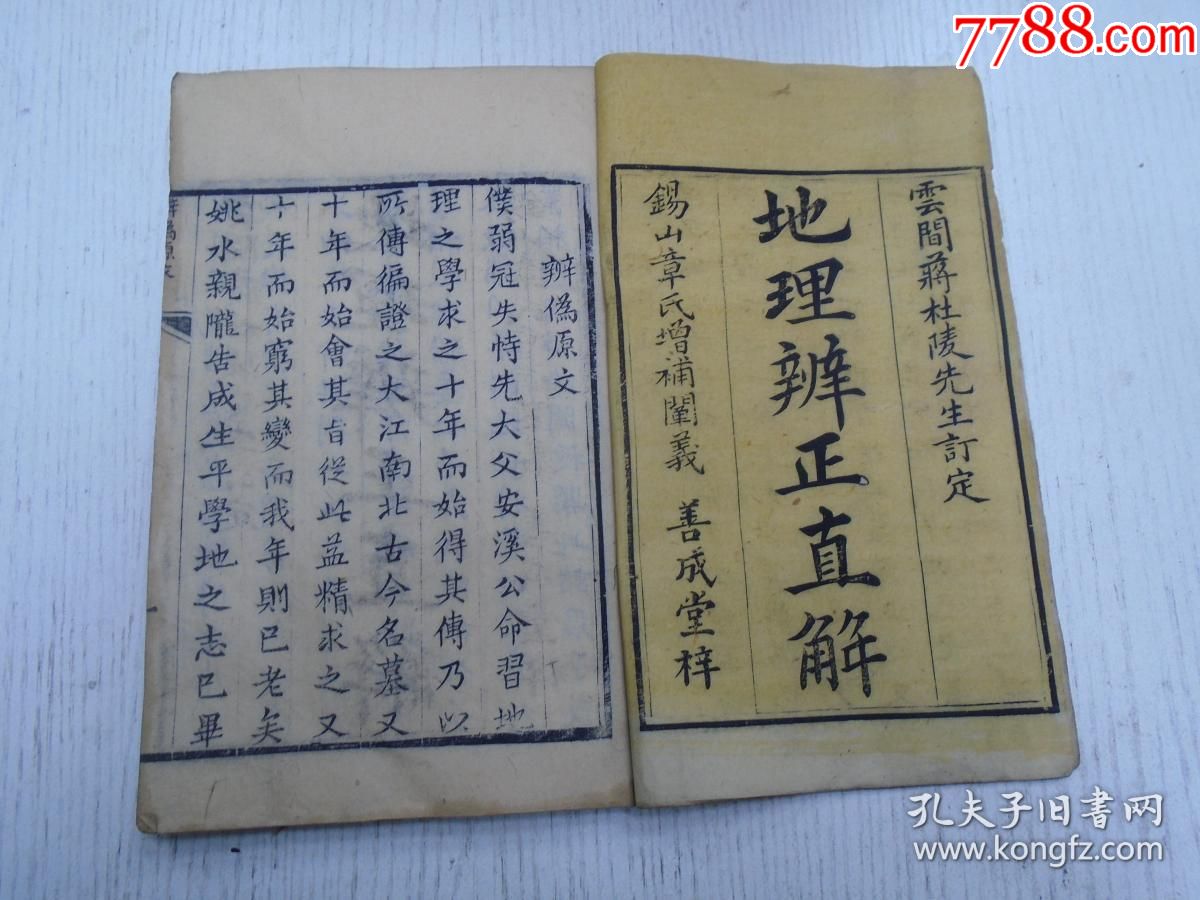 7788.com
雲間蔣杜陵先生訂定
地理辨正直解
錫山章氏增補闡義 善成堂梓
辨僞原文
僕弱冠失恃先大父安溪公命習地
理之學求之十年而始得其傳乃以
所傳徧證之大江南北古今名墓又
十年而始會其旨從此益精求之又
十年而始窮其變而我年則已老矣
姚水親隴告成生平學地之志已畢
辨僞原文
孔夫子旧书网
www.kongfz.com